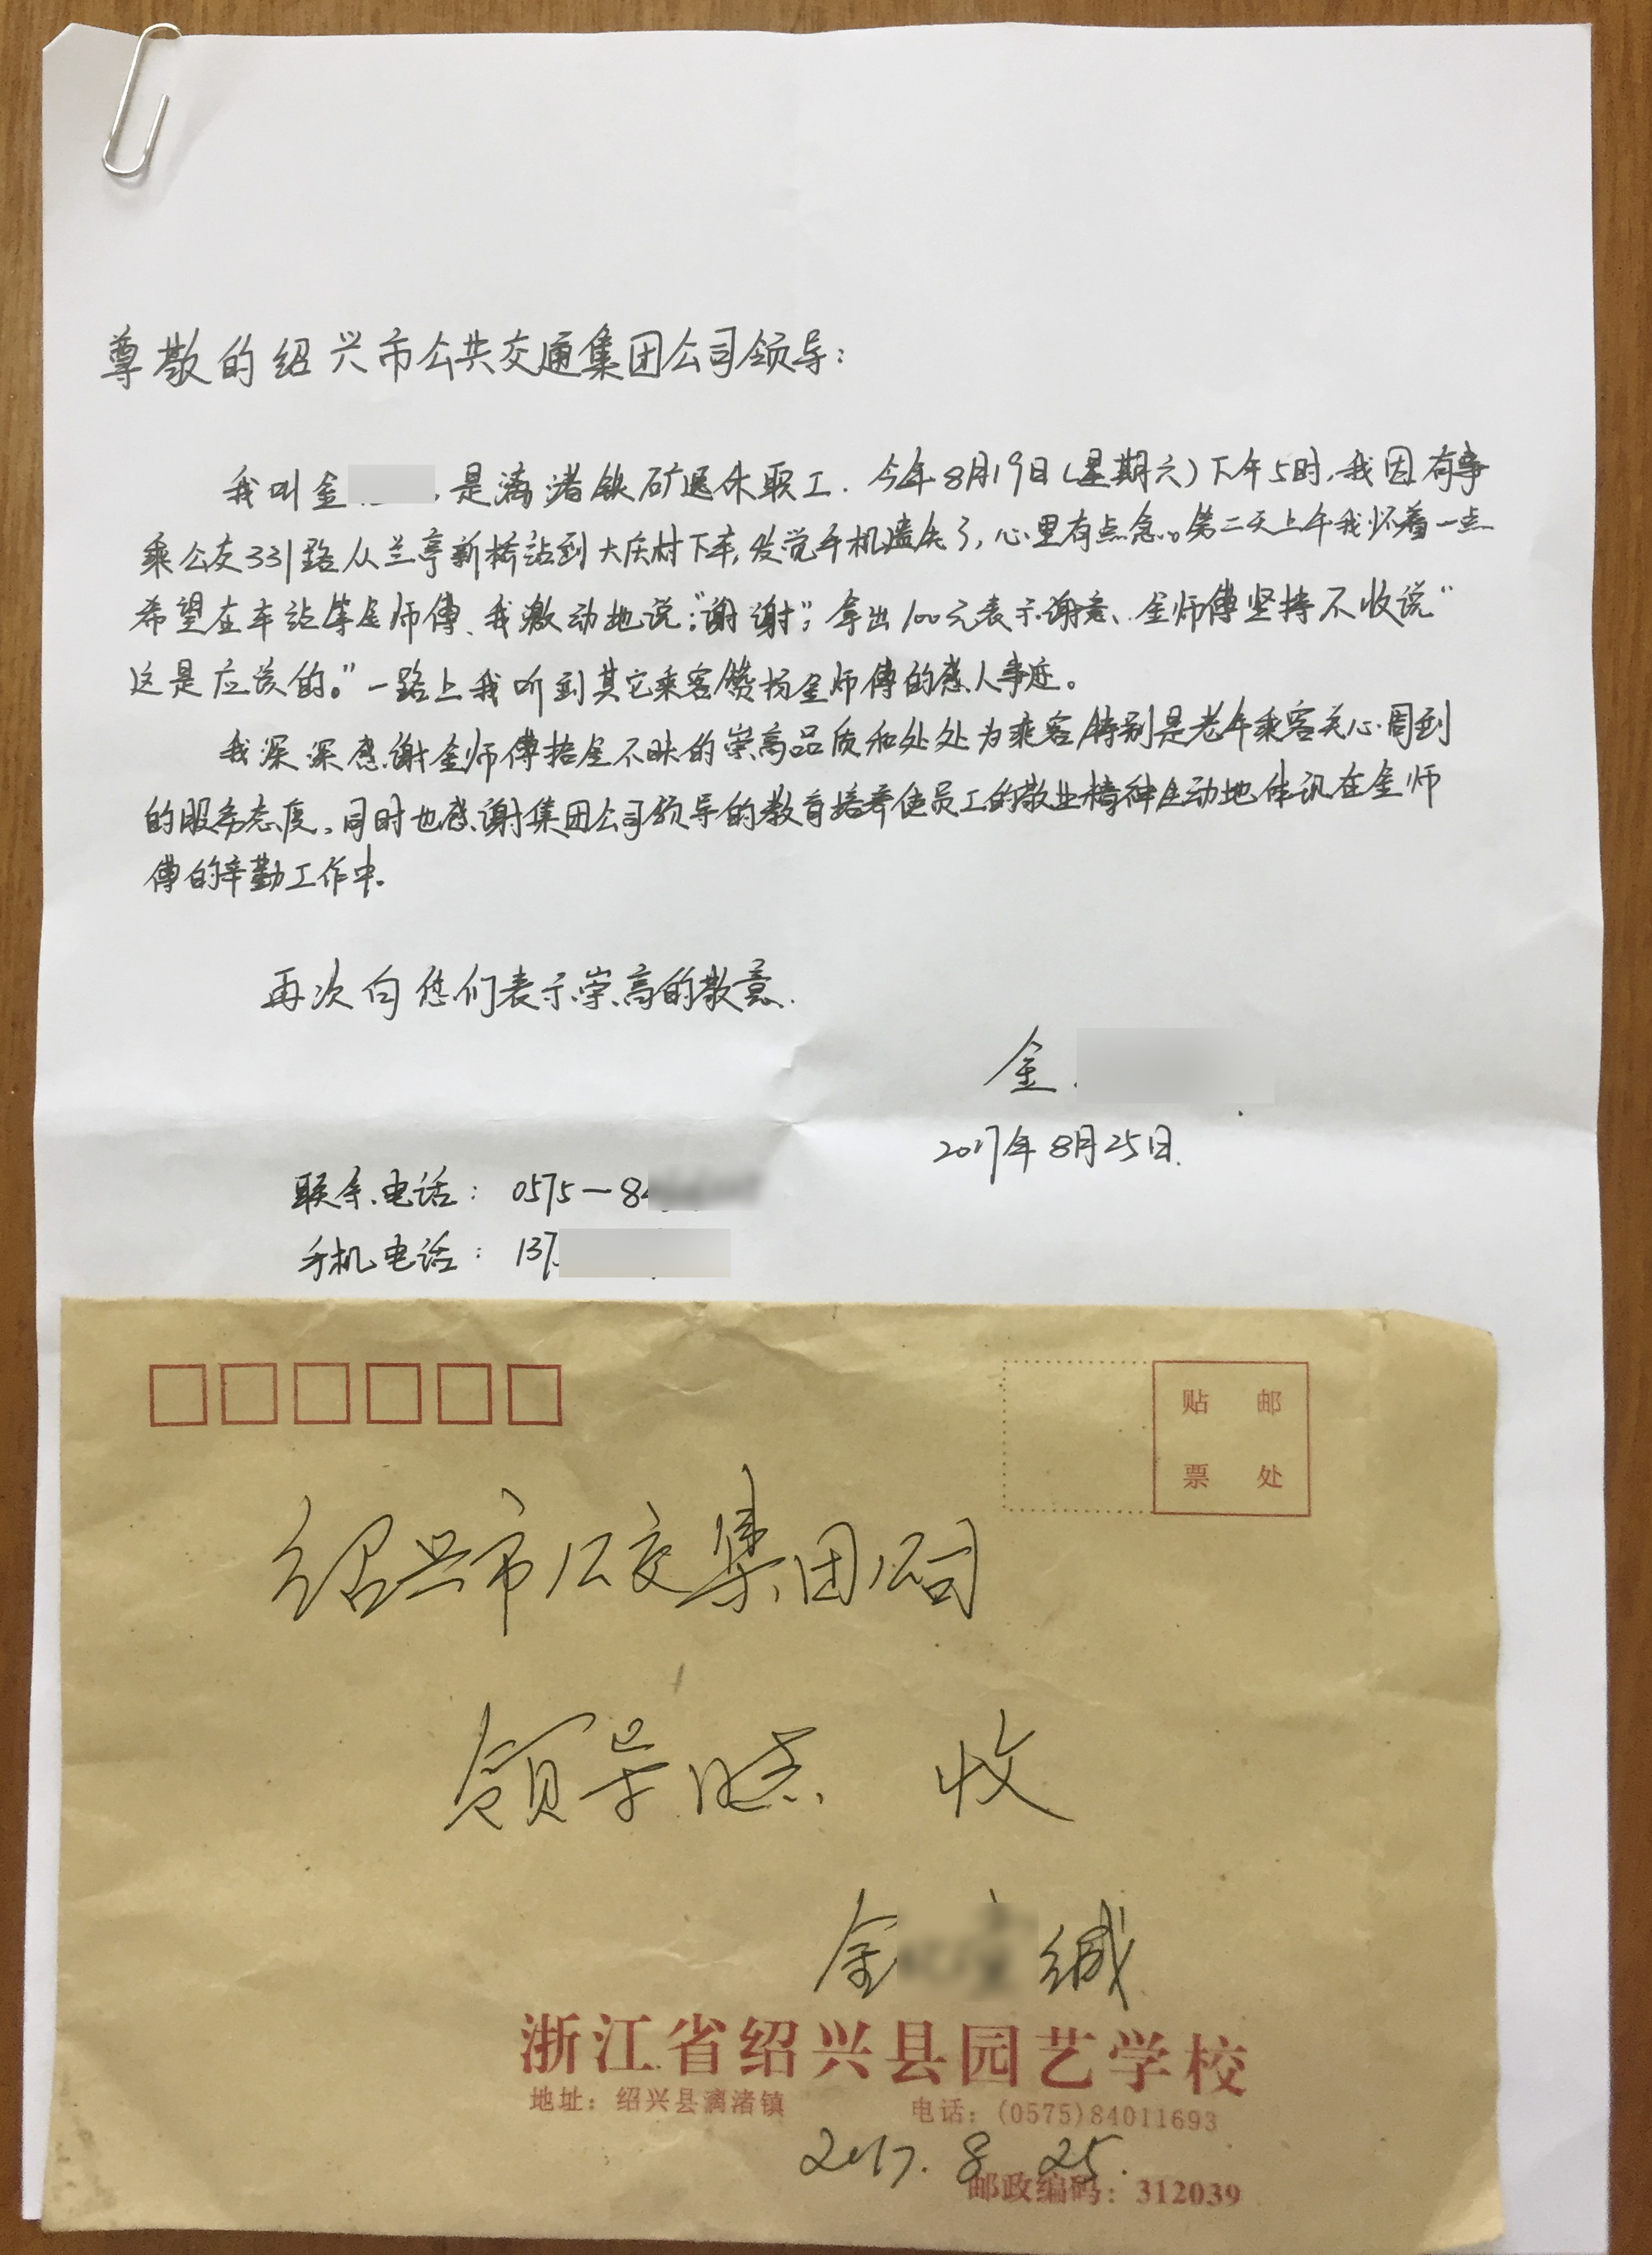 尊敬的绍兴市公共交通集团公司领导：
我叫金 ，是漓渚铁矿退休职工．今年8月19日(星期六)下午5时，我因有事
乘公交331路从兰亭新桥站到大庆村下车，发觉手机遗失了，心里有点急。第二天上午我怀着一点
希望在车站等金师傅、我激动地说：“谢谢”；拿出100元表示谢意、金师傅坚持不收说“
这是应该的。”一路上我听到其它乘客赞扬金师傅的感人事迹。
我深深感谢金师傅拾金不昧的崇高品质和处处为乘客，特别是老年乘客关心周到
的服务态度。同时也感谢集团公司领导的教育培养使员工的敬业精神生动地体现在金师
傅的辛勤工作中。
再次向您们表示崇高的敬意．
金
2017年8月25日．
联系电话：0575－84
手机电话：137
贴 邮
票 处
绍兴市公交集团公司
领导 收
金 缄
浙江省绍兴县园艺学校
地址：绍兴县漓渚镇 电话：(0575)84011693
2017．8．25．
邮政编码：312039